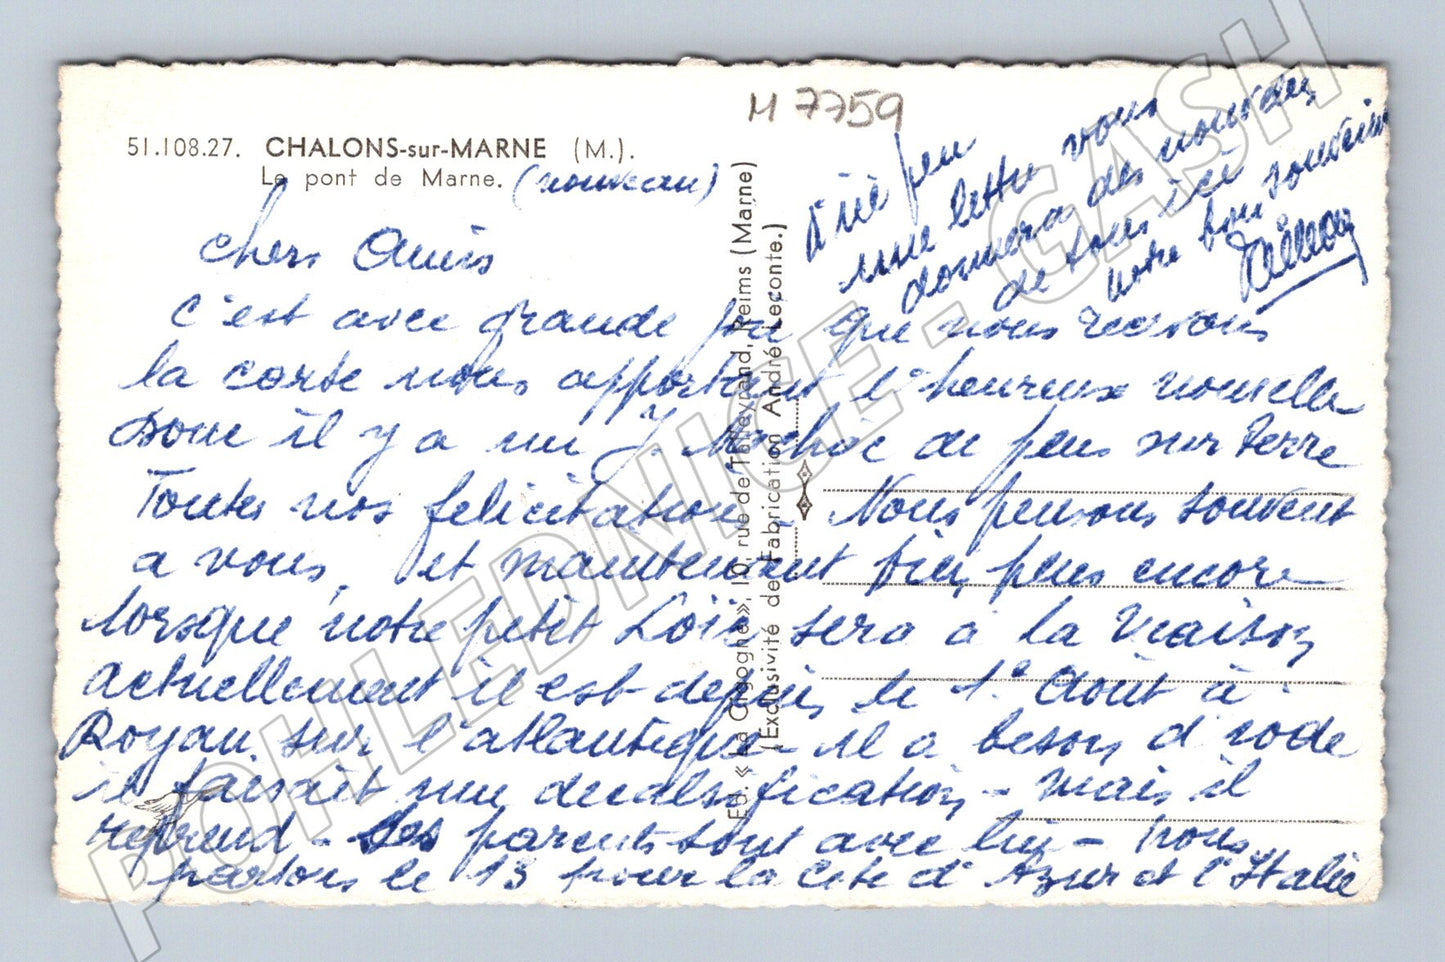 M 7759
51.108.27. CHALONS-sur-MARNE (M.).
Le pont de Marne. (nouveau)
Chers Amis
C'est avec grande joie que nous recevons
la carte nous apportant l'heureuse nouvelle
donc il y a un J. de plus sur terre
Toutes nos felicitations - Nous pensons souvent
a vous, et maintenant bien plus encore
lorsque notre petit Loïc sera a la maison
actuellement il est depuis le 1° Août à
Royan sur l'atlantique - il a besoin d'iode
il faisait une decalsification - mais il
reprend - Ses parents sont avec lui - nous
partons le 13 pour la Cote d'Azur et l'Italie
peu
une lettre vous
donnera des nouvelles
de tous ici
votre bon souvenir
Ed. « La Cigogne », 10, rue de Talleyrand, Reims (Marne)
(Exclusivité de Fabrication André Leconte.)
POHLEDNICE - GASH